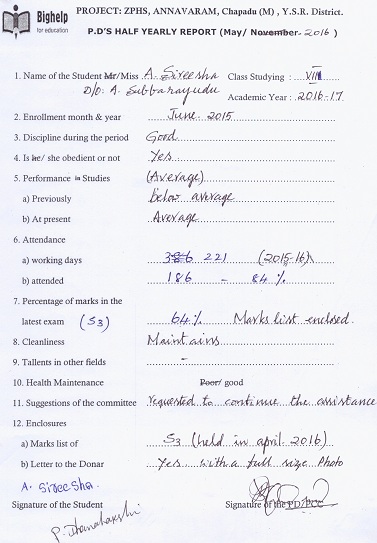 Bighelp
for education
PROJECT: ZPHS, ANNAVARAM, Chapadu (M) , Y.S.R. District.
P.D'S HALF YEARLY REPORT (May/ November- 2016 )
1. Name of the Student Mr/Miss A. Sireesha Class Studying : VIII
D/O A. Subbarayudu Academic Year : 2016-17
2. Enrollment month & year June. 2015
3. Discipline during the period Good
4. Is he/ she obedient or not Yes
5. Performance in Studies (Average)
a) Previously Below average
b) At present Average
6. Attendance
a) working days 386 221 (2015-16)
b) attended 186 - 84%
7. Percentage of marks in the
latest exam (S3) 64% Marks list enclosed.
8. Cleanliness Maintains
9. Tallents in other fields -
10. Health Maintenance Poor/ good
11. Suggestions of the committee requested to continue the assistance
12. Enclosures
a) Marks list of S3 (held in april. 2016)
b) Letter to the Donar Yes with a full size Photo
A. SireeSha.
Signature of the Student Signature of the PD/POC